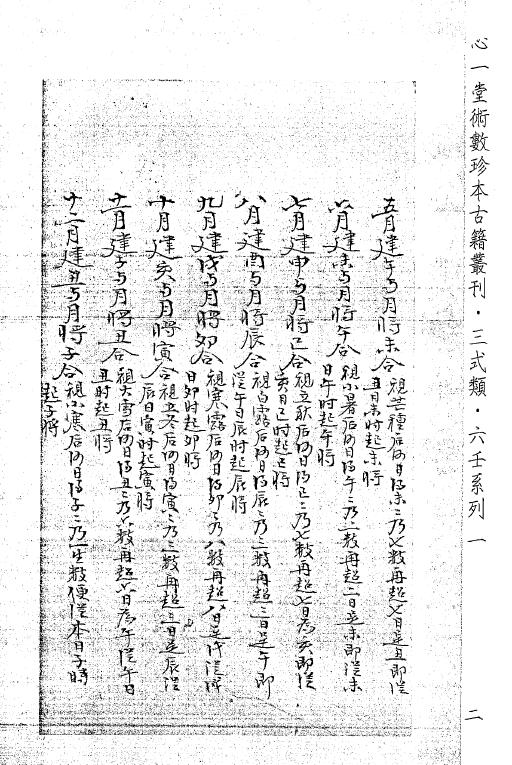 心一堂術數珍本古籍叢刊・三式類・六壬系列 一
二
五月建午与月將未合 視芒種后何日得未未乃七數再起七日是丑即從
丑日未时起未將
六月建未与月將午合 視小暑后何日得午午乃一數再起一日是未即從未
日午时起午將
七月建申与月將巳合 視立秋后何日得巳巳乃七數再起七日為亥即從
亥日巳时起巳將
八月建酉与月將辰合 視白露后何日得辰辰乃三數再起三日是午即
從午日辰时起辰將
九月建戌与月將卯合 視寒露后何日得卯卯乃八數再起八日是戌從戌
日卯时起卯將
十月建亥与月將寅合 視立冬后何日得寅寅乃三數再起三日是辰從
辰日寅时起寅將
十一月建子与月將丑合 視大雪后何日得丑丑乃六數再起六日為午從午日
丑时起丑將
十二月建丑与月將子合 視小寒后何日得子子乃一生數便從本日子時
起子將